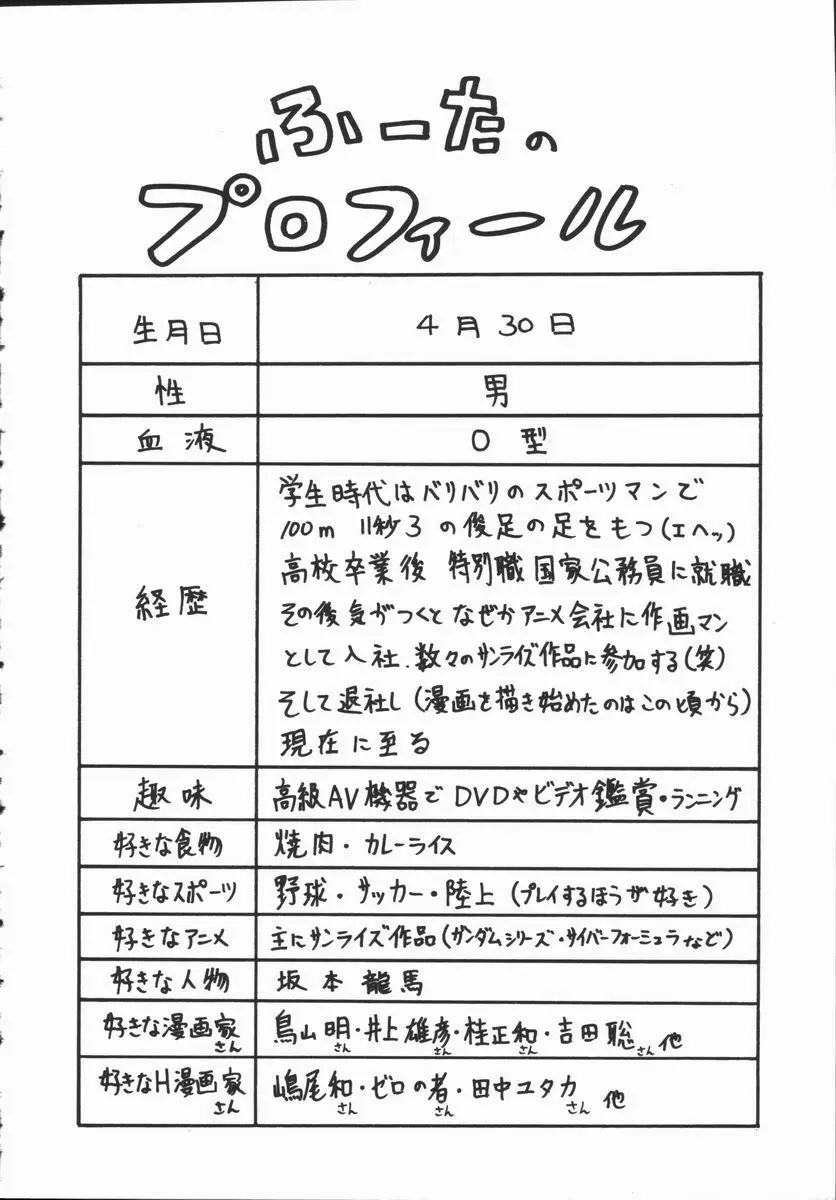 ふーたの
プロフィール
生月日
4月30日
性
男
血液
O型
経歴
学生時代はバリバリのスポーツマンで
100m 11秒3の俊足の足をもつ(エヘッ)
高校卒業後 特別職国家公務員に就職
その後気がつくとなぜかアニメ会社に作画マン
として入社.数々のサンライズ作品に参加する(笑)
そして退社し(漫画を描き始めたのはこの頃から)
現在に至る
趣味
高級AV機器でDVDやビデオ鑑賞・ランニング
好きな食物
焼肉・カレーライス
好きなスポーツ
野球・サッカー・陸上(プレイするほうが好き)
好きなアニメ
主にサンライズ作品(ガンダムシリーズ・サイバーフォーミュラなど)
好きな人物
坂本龍馬
好きな漫画家さん
鳥山明さん・井上雄彦さん・桂正和さん・吉田聡さん 他
好きなH漫画家さん
嶋尾和さん・ゼロの者さん・田中ユタカさん 他